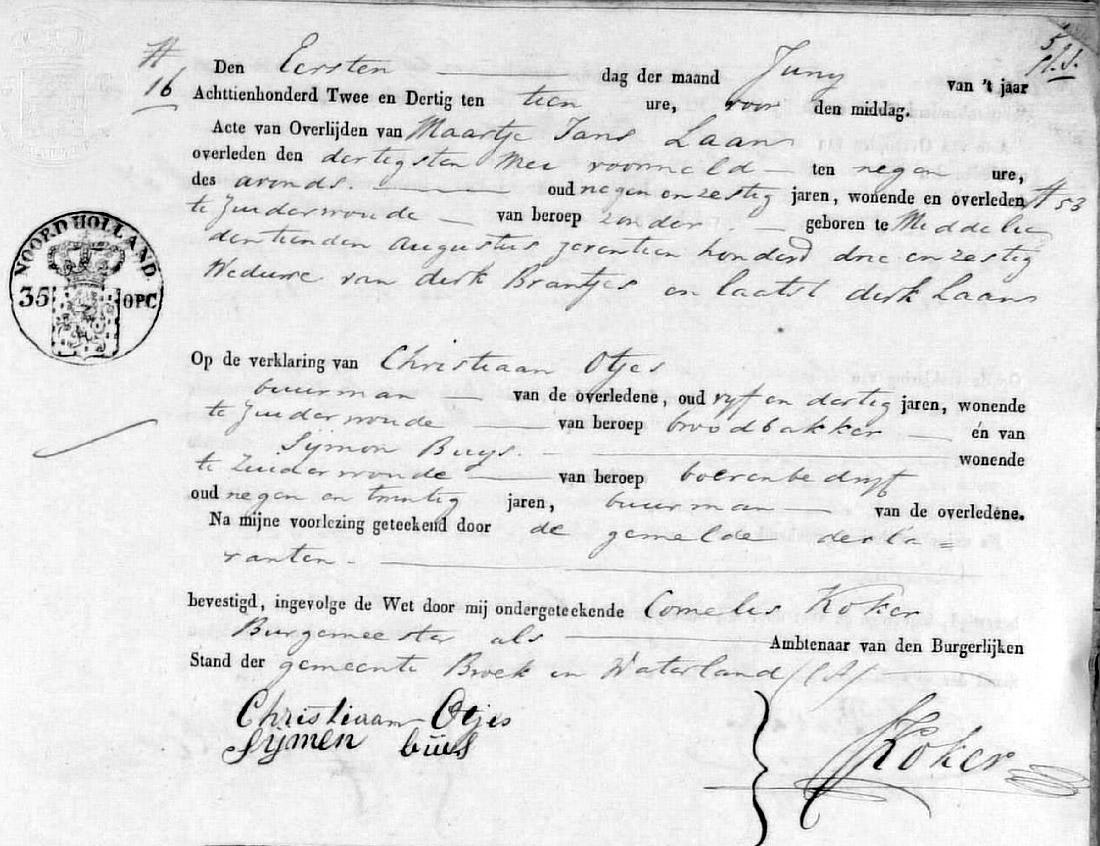 № 16
Den Eersten dag der maand Juny van 't jaar
Achttienhonderd Twee en Dertig ten tien ure, voor den middag.
Acte van Overlijden van Maartje Jans Laan
overleden den dertigsten Mei voormeld ten negen ure,
des avonds. oud negen en zestig jaren, wonende en overleden
№ 53
te Zuiderwoude van beroep zonder. geboren te Middelie
dertienden augustus zeventien honderd drie en zestig
Weduwe van dirk Brantjes en laatst dirk Laan
NOORD HOLLAND
35 OPC
Op de verklaring van Christiaan Otjes
buurman van de overledene, oud vyf en dertig jaren, wonende
te Zuiderwoude van beroep broodbakker én van
Sijmon Buijs. wonende
te Zuiderwoude van beroep boerenbedryf
oud negen en twintig jaren, buurman van de overledene.
Na mijne voorlezing geteekend door de gemelde decla=
ranten.
bevestigd, ingevolge de Wet door mij ondergeteekende Cornelis Koker
Burgemeester als Ambtenaar van den Burgerlijken
Stand der gemeente Broek in Waterland
Christiaan Otjes
Sijmen buijs
Koker